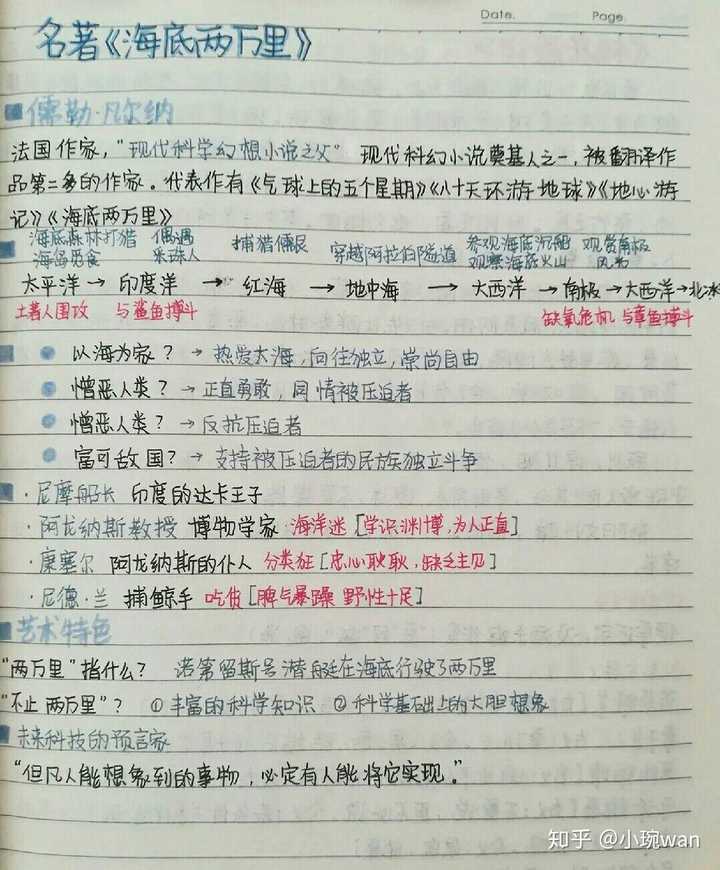 Date.  Page.
名著《海底两万里》
儒勒·凡尔纳
法国作家，“现代科学幻想小说之父”现代科幻小说奠基人之一，被翻译作
品第二多的作家。代表作有《气球上的五个星期》《八十天环游地球》《地心游
记》《海底两万里》
海底森林打猎 偶遇 捕猎儒艮 穿越阿拉伯隧道 参观海底沉船 观赏南极
海岛觅食 采珠人 观察海底火山 风光
太平洋 → 印度洋 → 红海 → 地中海 → 大西洋 → 南极 → 大西洋 → 北冰
土著人围攻 与鲨鱼搏斗 缺氧危机 与章鱼搏斗
以海为家？→ 热爱大海，向往独立，崇尚自由
憎恶人类？→ 正直勇敢，同情被压迫者
憎恶人类？→ 反抗压迫者
富可敌国？→ 支持被压迫者的民族独立斗争
·尼摩船长 印度的达卡王子
·阿龙纳斯教授 博物学家 海洋迷［学识渊博，为人正直］
·康塞尔 阿龙纳斯的仆人 分类狂［忠心耿耿，缺乏主见］
·尼德·兰 捕鲸手 吃货［脾气暴躁 野性十足］
艺术特色
“两万里”指什么？ 诺第留斯号潜艇在海底行驶了两万里
“不止两万里”？ ①丰富的科学知识 ②科学基础上的大胆想象
未来科技的预言家
“但凡人能想象到的事物，必定有人能将它实现。”
知乎 @小琬wan